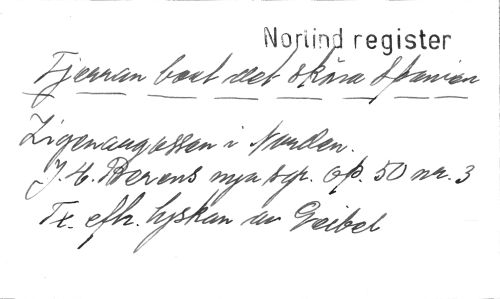 Norlind register
Fjerran bort det sköna Spanien
Zigenargossen i Norden.
J. H. Berens nya sgr. op. 50 nr. 3
Tx. efh. tyskan av Geibel